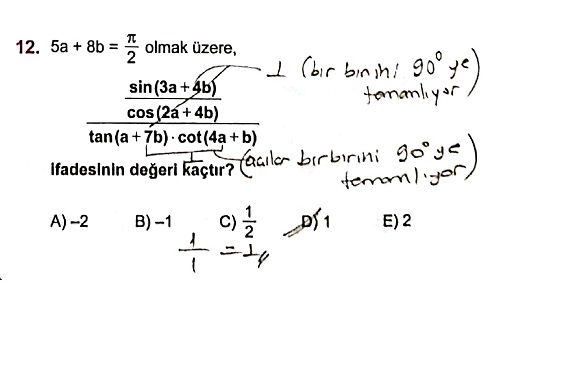 12. 5a + 8b = π/2 olmak üzere,
sin(3a + 4b)
cos(2a + 4b)
tan(a + 7b) · cot(4a + b)
ifadesinin değeri kaçtır?
1 (bir birini 90° ye
tamamlıyor)
(açılar birbirini 90° ye
tamamlıyor)
A) –2 B) –1 C) 1/2 D) 1 E) 2
1/1 = 1